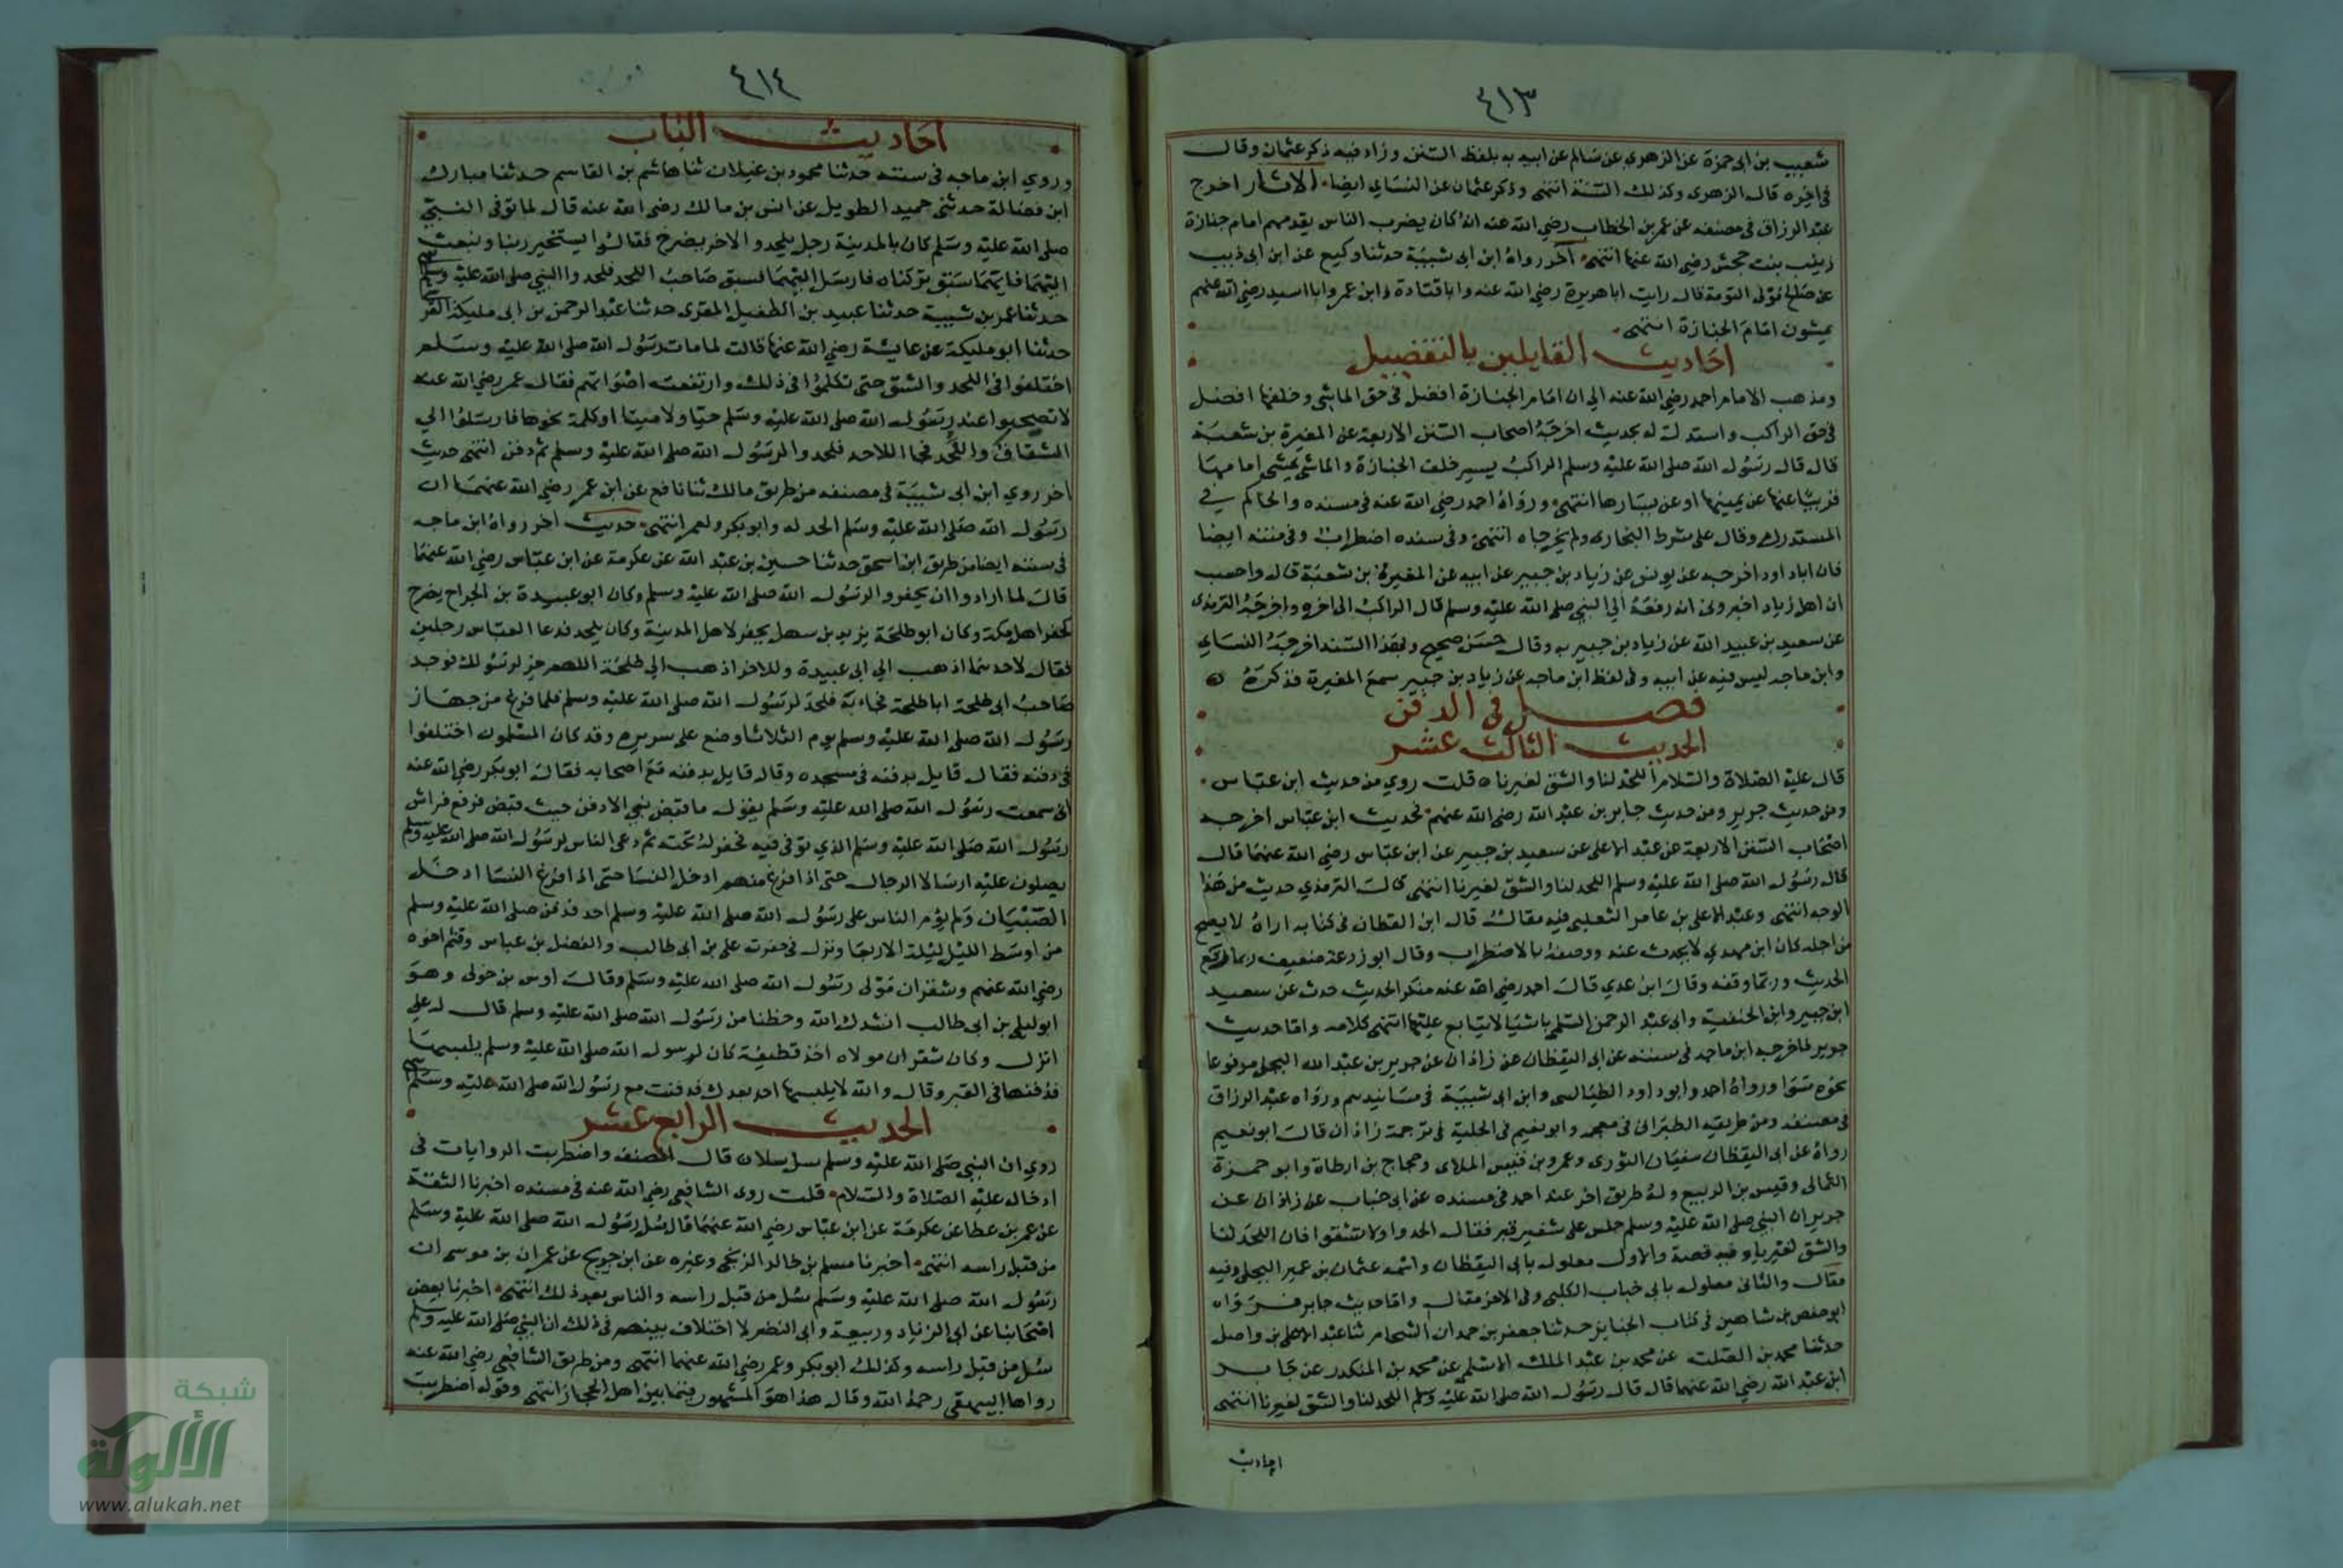 ٤١٣
شعيب بن ابى حمزة عن الزهرى عن سالم عن ابيه به بلفظ السنن وزاد فيه ذكر عثمان وقال
فى اخره قال الزهرى وكذلك السنة انتهى وذكر عثمان عن النسائي ايضا الاثار اخرج
عبد الرزاق فى مصنفه عن عمر بن الخطاب رضي الله عنه انه كان يضرب الناس يقدمهم امام جنازة
زينب بنت جحش رضي الله عنها انتهى اخر رواه ابن ابى شيبة حدثنا وكيع عن ابن ابى ذيب
عن صالح مولى التومة قال رايت ابا هريرة رضي الله عنه وابا قتادة وابن عمر وابا اسيد رضي الله عنهم
يمشون امام الجنازة انتهى
احاديث القايلين بالتفضيل
ومذهب الامام احمد رضي الله عنه الى ان امام الجنازة افضل فى حق الماشى وخلفها افضل
فى حق الراكب واستدل له بحديث اخرجه اصحاب السنن الاربعة عن المغيرة بن شعبة
قال قال رسول الله صلى الله عليه وسلم الراكب يسير خلف الجنازة والماشى يمشى امامها
قريبا عنها عن يمينها او عن يسارها انتهى ورواه احمد رضي الله عنه فى مسنده والحاكم في
المستدرك وقال على شرط البخارى ولم يخرجاه انتهى وفى سنده اضطراب وفى متنه ايضا
فان ابا داود اخرجه عن يونس عن زياد بن جبير عن ابيه عن المغيرة بن شعبة قال واحسب
ان اهل زياد اخبرونى انه رفعه الى النبي صلى الله عليه وسلم قال الراكب الى اخره واخرجه الترمذى
عن سعيد بن عبيد الله عن زياد بن جبير به وقال حسن صحيح وبهذا السند اخرجه النساي
وابن ماجه ليس فيه عن ابيه وفى لفظ ابن ماجه عن زياد بن جبير سمع المغيرة فذكره
فصل فى الدفن
الحديث الثالث عشر
قال عليه الصلاة والسلام اللحد لنا والشق لغيرنا قلت روي من حديث ابن عباس
ومن حديث جرير ومن حديث جابر بن عبد الله رضي الله عنهم فحديث ابن عباس اخرجه
اصحاب السنن الاربعة عن عبد الاعلى عن سعيد بن جبير عن ابن عباس رضي الله عنهما قال
قال رسول الله صلى الله عليه وسلم اللحد لنا والشق لغيرنا انتهى قال الترمذي حديث من هذا
الوجه انتهى وعبد الاعلى بن عامر الثعلبى فيه مقال قال ابن القطان فى كتابه اراه لا يصح
من اجله كان ابن مهدي لا يحدث عنه ووصفه بالاضطراب وقال ابو زرعة ضعيف ربما رفع
الحديث وربما وقفه وقال ابن عدي قال احمد رضي الله عنه منكر الحديث حدث عن سعيد
ابن جبير وابن الحنفية وابى عبد الرحمن السلمى باشيا لا يتابع عليها انتهى كلامه واما حديث
جرير فاخرجه ابن ماجه فى سننه عن ابى اليقظان عن زاذان عن جرير بن عبد الله البجلى مرفوعا
نحوه سوا ورواه احمد وابو داود الطيالسى وابن ابى شيبة فى مسانيدهم ورواه عبد الرزاق
فى مصنفه ومن طريقه الطبرانى فى معجمه وابو نعيم فى الحلية فى ترجمة زاذان قال ابو نعيم
رواه عن ابى اليقظان سفيان الثورى وعمرو بن قيس الملاى وحجاج بن ارطاة وابو حمزة
الثمالى وقيس بن الربيع وله طريق اخر عند احمد فى مسنده عن ابى خباب عن زاذان عن
جرير ان النبي صلى الله عليه وسلم جلس على شفير قبر فقال الحدوا ولا تشقوا فان اللحد لنا
والشق لغيرنا وفيه قصة والاول معلول بابى اليقظان واسمه عثمان بن عمير البجلى وفيه
مقال والثانى معلول بابى خباب الكلبى وفى الاخر مقال واما حديث جابر فرواه
ابو حفص بن شاهين فى كتاب الجنايز حدثنا جعفر بن حمدان الشحام ثنا عبد الاعلى بن واصل
حدثنا محمد بن الصلت عن محمد بن عبد الملك الاسلمى عن محمد بن المنكدر عن جابر
ابن عبد الله رضي الله عنهما قال قال رسول الله صلى الله عليه وسلم اللحد لنا والشق لغيرنا انتهى
احاديث
٤١٤
احاديث الباب
وروي ابن ماجه فى سننه حدثنا محمود بن غيلان ثنا هاشم بن القاسم حدثنا مبارك
ابن فضالة حدثنى حميد الطويل عن انس بن مالك رضي الله عنه قال لما توفى النبي
صلى الله عليه وسلم كان بالمدينة رجل يلحد والاخر يضرخ فقالوا يستخير ربنا ونبعث
اليهما فايهما سبق تركناه فارسل اليهما فسبق صاحب اللحد فلحدوا النبي صلى الله عليه وسلم
حدثنا عمر بن شيبة حدثنا عبيد بن الطفيل المقرى حدثنا عبد الرحمن بن ابى مليكة القرشى
حدثنا ابو مليكة عن عايشة رضي الله عنها قالت لما مات رسول الله صلى الله عليه وسلم
اختلفوا فى اللحد والشق حتى تكلموا فى ذلك وارتفعت اصواتهم فقال عمر رضي الله عنه
لا تصيحوا عند رسول الله صلى الله عليه وسلم حيا ولا ميتا او كلمة نحوها فارسلوا الي
الشقاق واللاحد فجا اللاحد فلحدوا لرسول الله صلى الله عليه وسلم ثم دفن انتهى حديث
اخر روي ابن ابى شيبة فى مصنفه من طريق مالك ثنا نافع عن ابن عمر رضي الله عنهما ان
رسول الله صلى الله عليه وسلم الحد له وابو بكر وعمر انتهى حديث اخر رواه ابن ماجه
فى سننه ايضا من طريق ابن اسحق حدثنا حسين بن عبد الله عن عكرمة عن ابن عباس رضي الله عنهما
قال لما ارادوا ان يحفروا لرسول الله صلى الله عليه وسلم وكان ابو عبيدة بن الجراح يضرح
كحفر اهل مكة وكان ابو طلحة يزيد بن سهل يحفر لاهل المدينة وكان يلحد فدعا العباس رجلين
فقال لاحدهما اذهب الي ابى عبيدة وللاخر اذهب الي طلحة اللهم خر لرسولك فوجد
صاحب ابى طلحة ابا طلحة فجاء به فلحد لرسول الله صلى الله عليه وسلم فلما فرغ من جهاز
رسول الله صلى الله عليه وسلم يوم الثلاثا وضع على سريره وقد كان المسلمون اختلفوا
فى دفنه فقال قايل يدفنه فى مسجده وقال قايل يدفنه مع اصحابه فقال ابو بكر رضي الله عنه
انى سمعت رسول الله صلى الله عليه وسلم يقول ما قبض نبي الا دفن حيث قبض فرفع فراش
رسول الله صلى الله عليه وسلم الذي توفى فيه فحفر له تحته ثم دعى الناس لرسول الله صلى الله عليه وسلم
يصلون عليه ارسالا الرجال حتى اذا فرغ منهم ادخل النسا حتى اذا فرغ النسا ادخل
الصبيان ولم يؤم الناس على رسول الله صلى الله عليه وسلم احد فدفن صلى الله عليه وسلم
من اوسط الليل ليلة الاربعا ونزل فى حفرته على بن ابى طالب والفضل بن عباس وقثم اخوه
رضي الله عنهم وشقران مولى رسول الله صلى الله عليه وسلم وقال اوس بن خولى وهو
ابو ليلى بن ابى طالب انشدك الله وحظنا من رسول الله صلى الله عليه وسلم قال له علي
انزل وكان شقران مولاه اخذ قطيفة كان لرسول الله صلى الله عليه وسلم يلبسها
فدفنها فى القبر وقال والله لا يلبسها احد بعدك فدفنت مع رسول الله صلى الله عليه وسلم
الحديث الرابع عشر
روي ان النبي صلى الله عليه وسلم سل سلا ن قال المصنف واضطربت الروايات فى
ادخاله عليه الصلاة والسلام قلت روى الشافعي رضي الله عنه فى مسنده اخبرنا الثقة
عن عمر بن عطا عن عكرمة عن ابن عباس رضي الله عنهما قال سل رسول الله صلى الله عليه وسلم
من قبل راسه انتهى اخبرنا مسلم بن خالد الزنجى وغيره عن ابن جريج عن عمران بن موسى ان
رسول الله صلى الله عليه وسلم سل من قبل راسه والناس بعد ذلك انتهى اخبرنا بعض
اصحابنا عن ابى الزناد وربيعة وابى النضر لا اختلاف بينهم فى ذلك ان النبي صلى الله عليه وسلم
سل من قبل راسه وكذلك ابو بكر وعمر رضي الله عنهما انتهى ومن طريق الشافعي رضي الله عنه
رواها البيهقي رحمه الله وقال هذا هو المشهور فيما بين اهل الحجاز انتهى وقوله اضطربت
شبكة
الألوكة
www.alukah.net